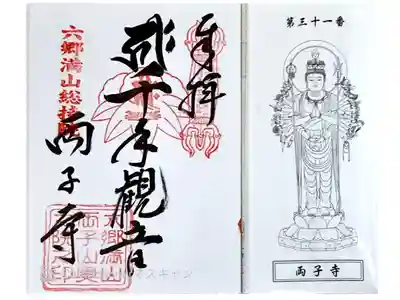 奉拝
千手觀音
六郷満山総持院
両子寺
第三十一番
両子寺